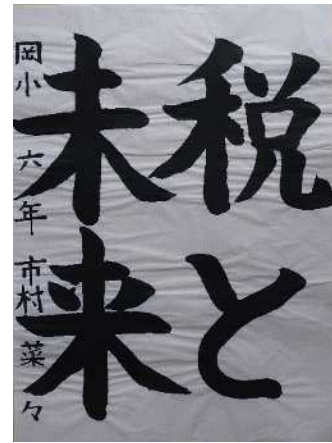 税と
未来
岡小 六年 市村菜々